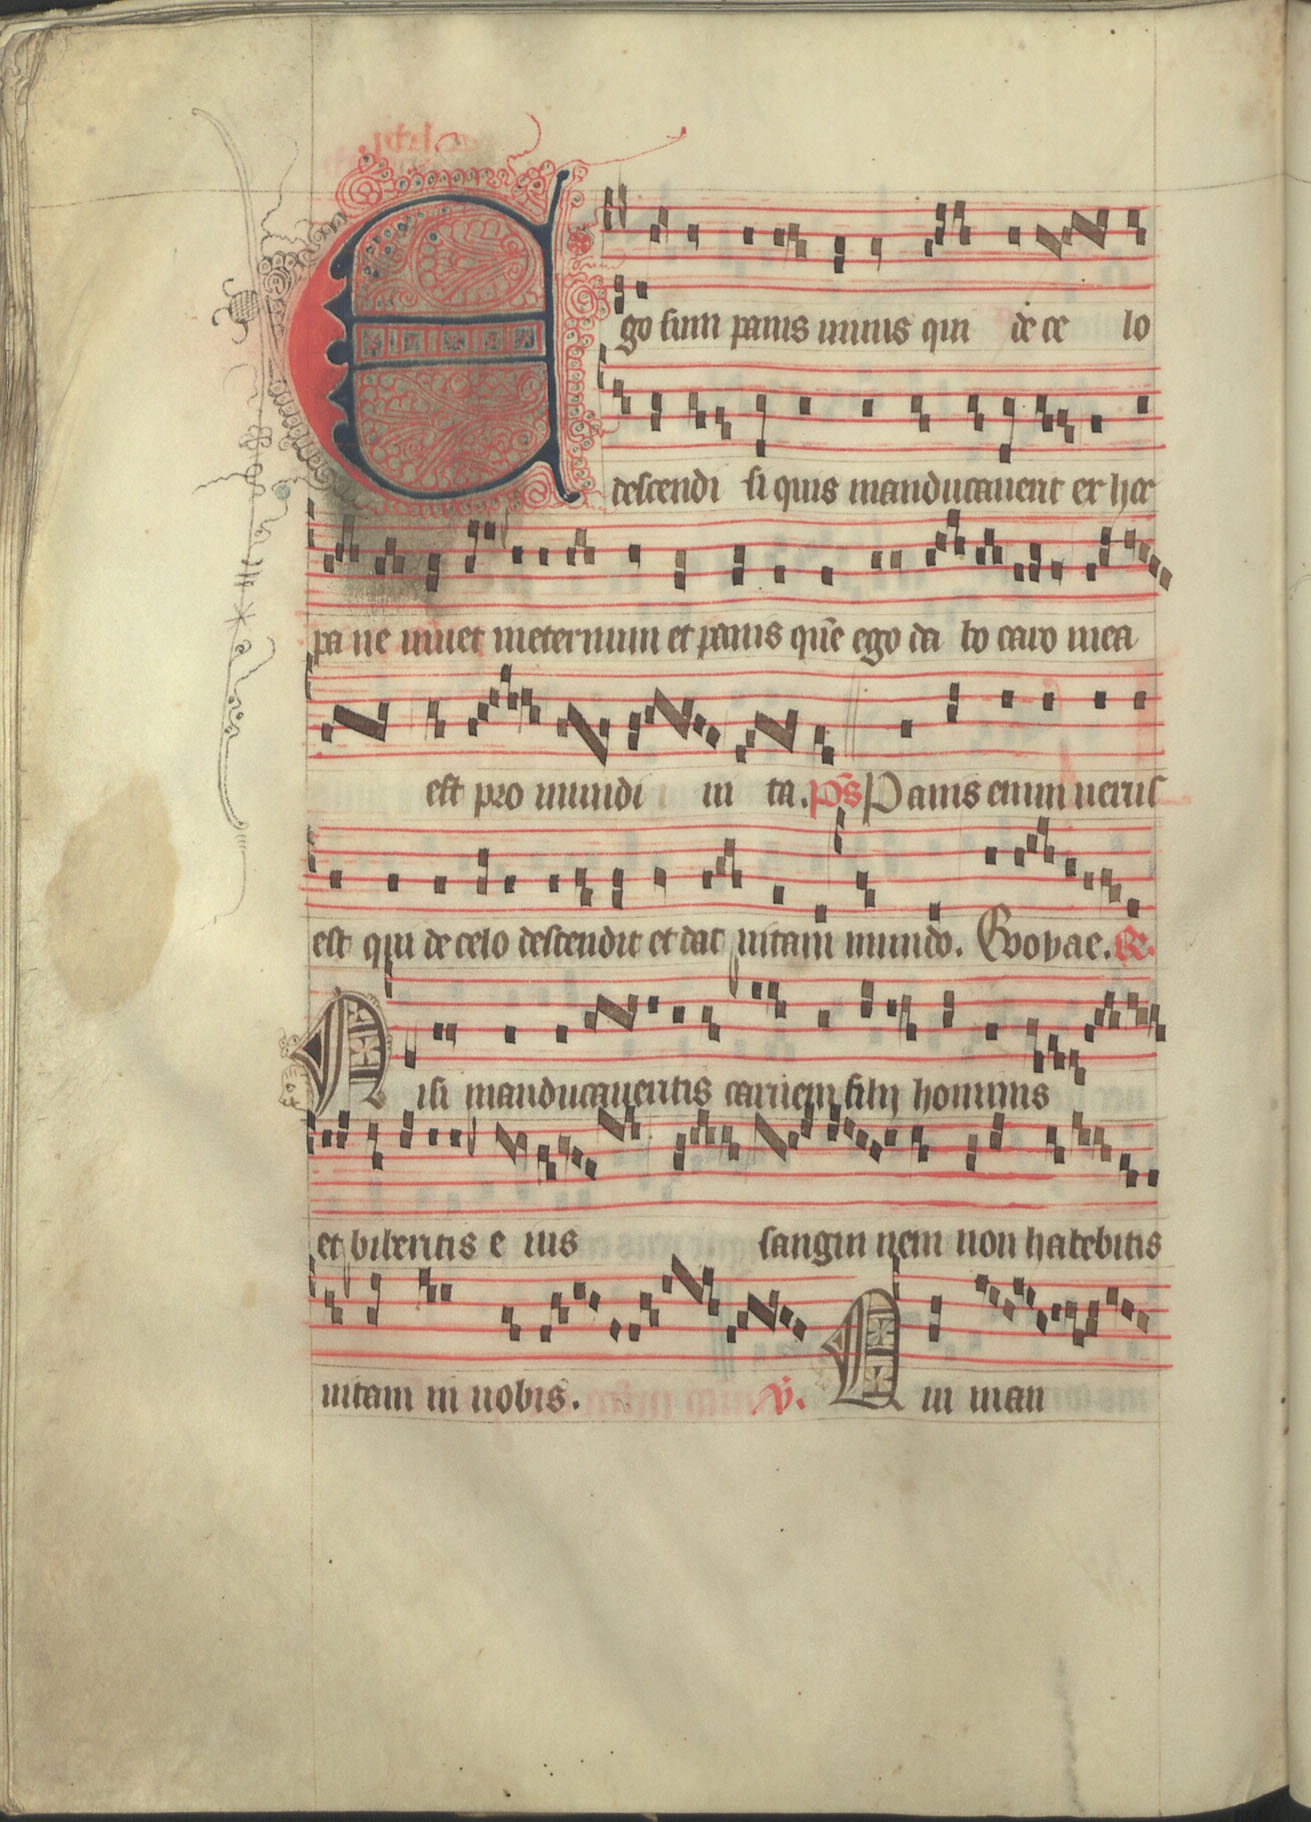 Ego sum panis uiuus qui de ce lo
descendi si quis manducauerit ex hoc
pa ne uiuet ineternum et panis quē ego da bo caro mea
est pro mundi ui ta. ps Panis enim uerus
est qui de celo descendit et dat uitam mundo. Euouae. R.
Nisi manducaueritis carnem filij hominis
et biberitis e ius sangui nem non habebitis
uitam in uobis. V. Qui man